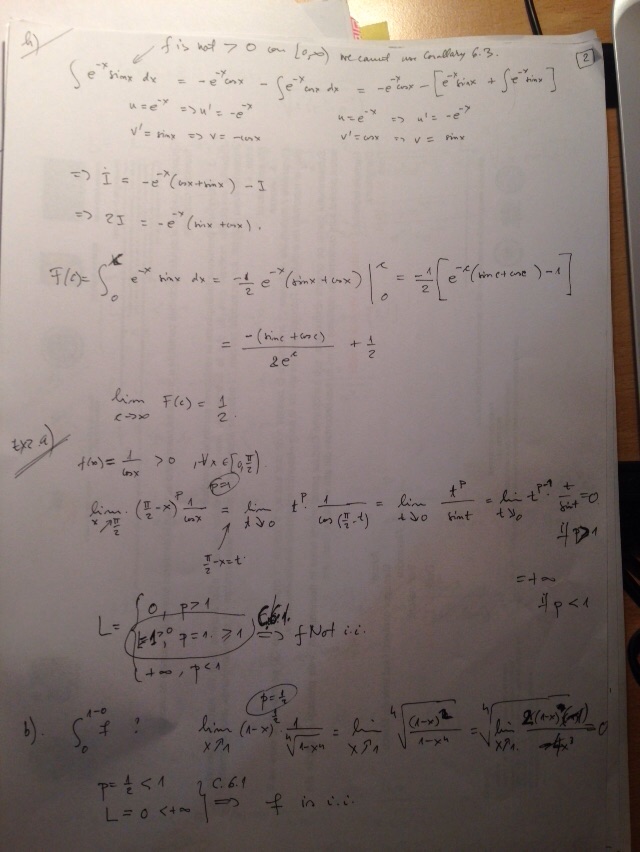 h) f is not > 0 on [0,∞) we cannot use Corollary 6.3. [2]
∫ e^{-x} sinx dx = -e^{-x}cosx - ∫e^{-x}cosx dx = -e^{-x}cosx - [e^{-x}sinx + ∫e^{-x}sinx]
u=e^{-x} => u' = -e^{-x} u=e^{-x} => u' = -e^{-x}
v'=sinx => v=-cosx v'=cosx => v = sinx
=> I = -e^{-x}(cosx+sinx) - I
=> 2I = -e^{-x}(sinx+cosx).
F(c)= ∫_0^c e^{-x} sinx dx = -1/2 e^{-x}(sinx+cosx) |_0^c = -1/2 [e^{-c}(sinc+cosc) - 1]
= -(sinc+cosc)/2e^c + 1/2
lim_{c→∞} F(c) = 1/2.
Ex2 a)
f(x)= 1/cosx > 0 , ∀x∈[0,π/2)
p=1
lim_{x↗π/2} (π/2-x)^p 1/cosx = lim_{t↘0} t^p · 1/cos(π/2-t) = lim_{t↘0} t^p/sint = lim_{t↘0} t^{p-1} · t/sint = 0
if p>1
π/2-x=t
= +∞
if p<1
L= { 0, p>1
1>0, p=1. ≥1 C.6.1. => f Not i.i.
+∞, p<1
p=1/2
b). ∫_0^{1-0} f ? lim_{x↗1} (1-x)^{1/2} · 1/⁴√(1-x⁴) = lim_{x↗1} ⁴√((1-x)²/(1-x⁴)) = ⁴√(lim_{x↗1} 2(1-x)(-1)/-4x³) = 0
p=1/2<1
L=0<+∞ } C.6.1 => f is i.i.